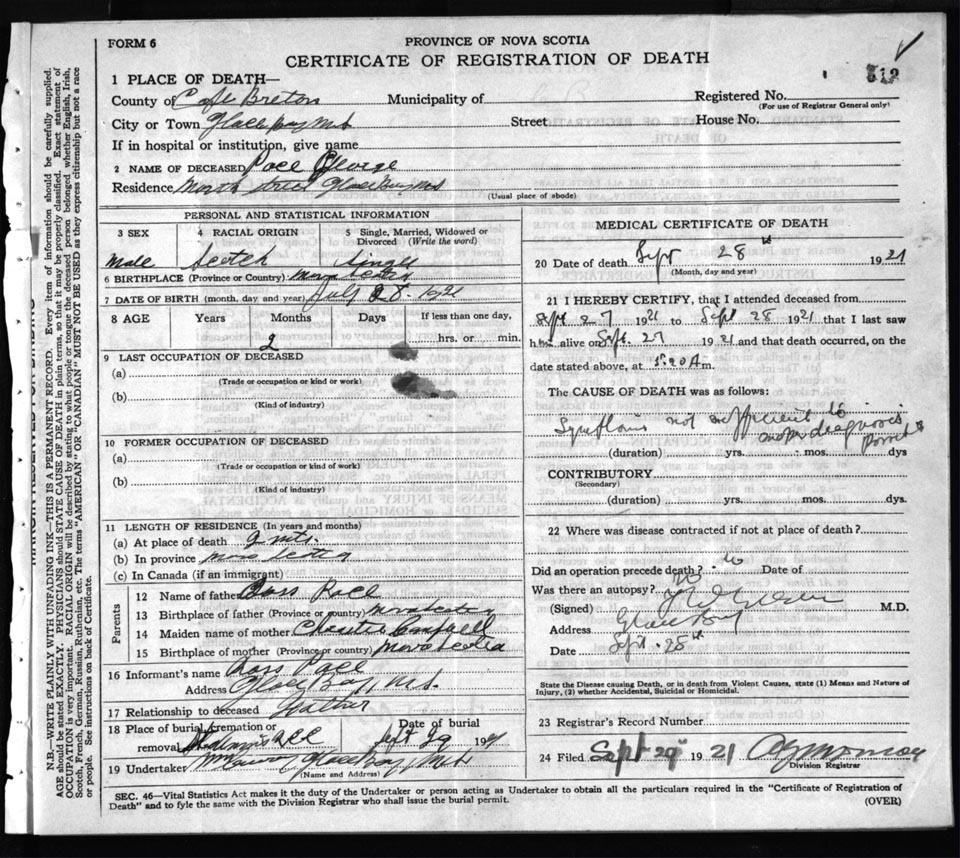 FORM 6
PROVINCE OF NOVA SCOTIA
CERTIFICATE OF REGISTRATION OF DEATH
512
1 PLACE OF DEATH—
County of Cape Breton Municipality of Registered No.
(For use of Registrar General only)
City or Town Glace Bay N.S. Street House No.
If in hospital or institution, give name
2 NAME OF DECEASED George
Residence North Street Glace Bay N.S.
(Usual place of abode)
PERSONAL AND STATISTICAL INFORMATION
3 SEX 4 RACIAL ORIGIN 5 Single, Married, Widowed or Divorced (Write the word)
Male Scotch Single
6 BIRTHPLACE (Province or Country) Nova Scotia
7 DATE OF BIRTH (month, day, and year) July 28. 1921
8 AGE Years Months Days If less than one day,
2 hrs. or min.
9 LAST OCCUPATION OF DECEASED
(a)
(Trade or occupation or kind or work)
(b)
(Kind of industry)
10 FORMER OCCUPATION OF DECEASED
(a)
(Trade or occupation or kind or work)
(b)
(Kind of industry)
11 LENGTH OF RESIDENCE (In years and months)
(a) At place of death 2 mts.
(b) In province Nova Scotia
(c) In Canada (if an immigrant)
Parents
12 Name of father Ross
13 Birthplace of father (Province or country) Nova Scotia
14 Maiden name of mother Campbell
15 Birthplace of mother (Province or country) Nova Scotia
16 Informant's name Ross
Address Glace Bay, N.S.
17 Relationship to deceased Father
18 Place of burial, cremation or removal Date of burial
Sept 29 1921
19 Undertaker Glace Bay, N.S.
(Name and Address)
MEDICAL CERTIFICATE OF DEATH
20 Date of death Sept 28th 1921
(Month, day and year)
21 I HEREBY CERTIFY, that I attended deceased from
Sept 27 1921 to Sept 28 1921 that I last saw
him alive on Sept. 27 1921 and that death occurred, on the
date stated above, at 1.20 A m.
The CAUSE OF DEATH was as follows:
Symptoms not sufficient to
make diagnosis
(duration) yrs. mos. dys
CONTRIBUTORY
(Secondary)
(duration) yrs. mos. dys.
22 Where was disease contracted if not at place of death?
Did an operation precede death? no Date of
Was there an autopsy? no
(Signed) M.D.
Address Glace Bay
Date Sept. 28th
State the Disease causing Death, or in death from Violent Causes, state (1) Means and Nature of
Injury, (2) whether Accidental, Suicidal or Homicidal.
23 Registrar's Record Number
24 Filed Sept 29th 1921
Division Registrar
SEC. 46—Vital Statistics Act makes it the duty of the Undertaker or person acting as Undertaker to obtain all the particulars required in the "Certificate of Registration of
Death" and to fyle the same with the Division Registrar who shall issue the burial permit.
(OVER)
N.B.—WRITE PLAINLY WITH UNFADING INK—THIS IS A PERMANENT RECORD. Every item of information should be carefully supplied.
AGE should be stated EXACTLY. PHYSICIANS should STATE CAUSE OF DEATH in plain terms, so that it may be properly classified. Exact statement of
OCCUPATION is very important. RACIAL ORIGIN will be described by stating to what people or tongue the deceased person belonged whether English, Irish,
Scotch, French, German, Russian, Ruthenian, etc. The terms "AMERICAN" OR "CANADIAN" MUST NOT BE USED as they express citizenship but not a race
or people. See instructions on back of Certificate.